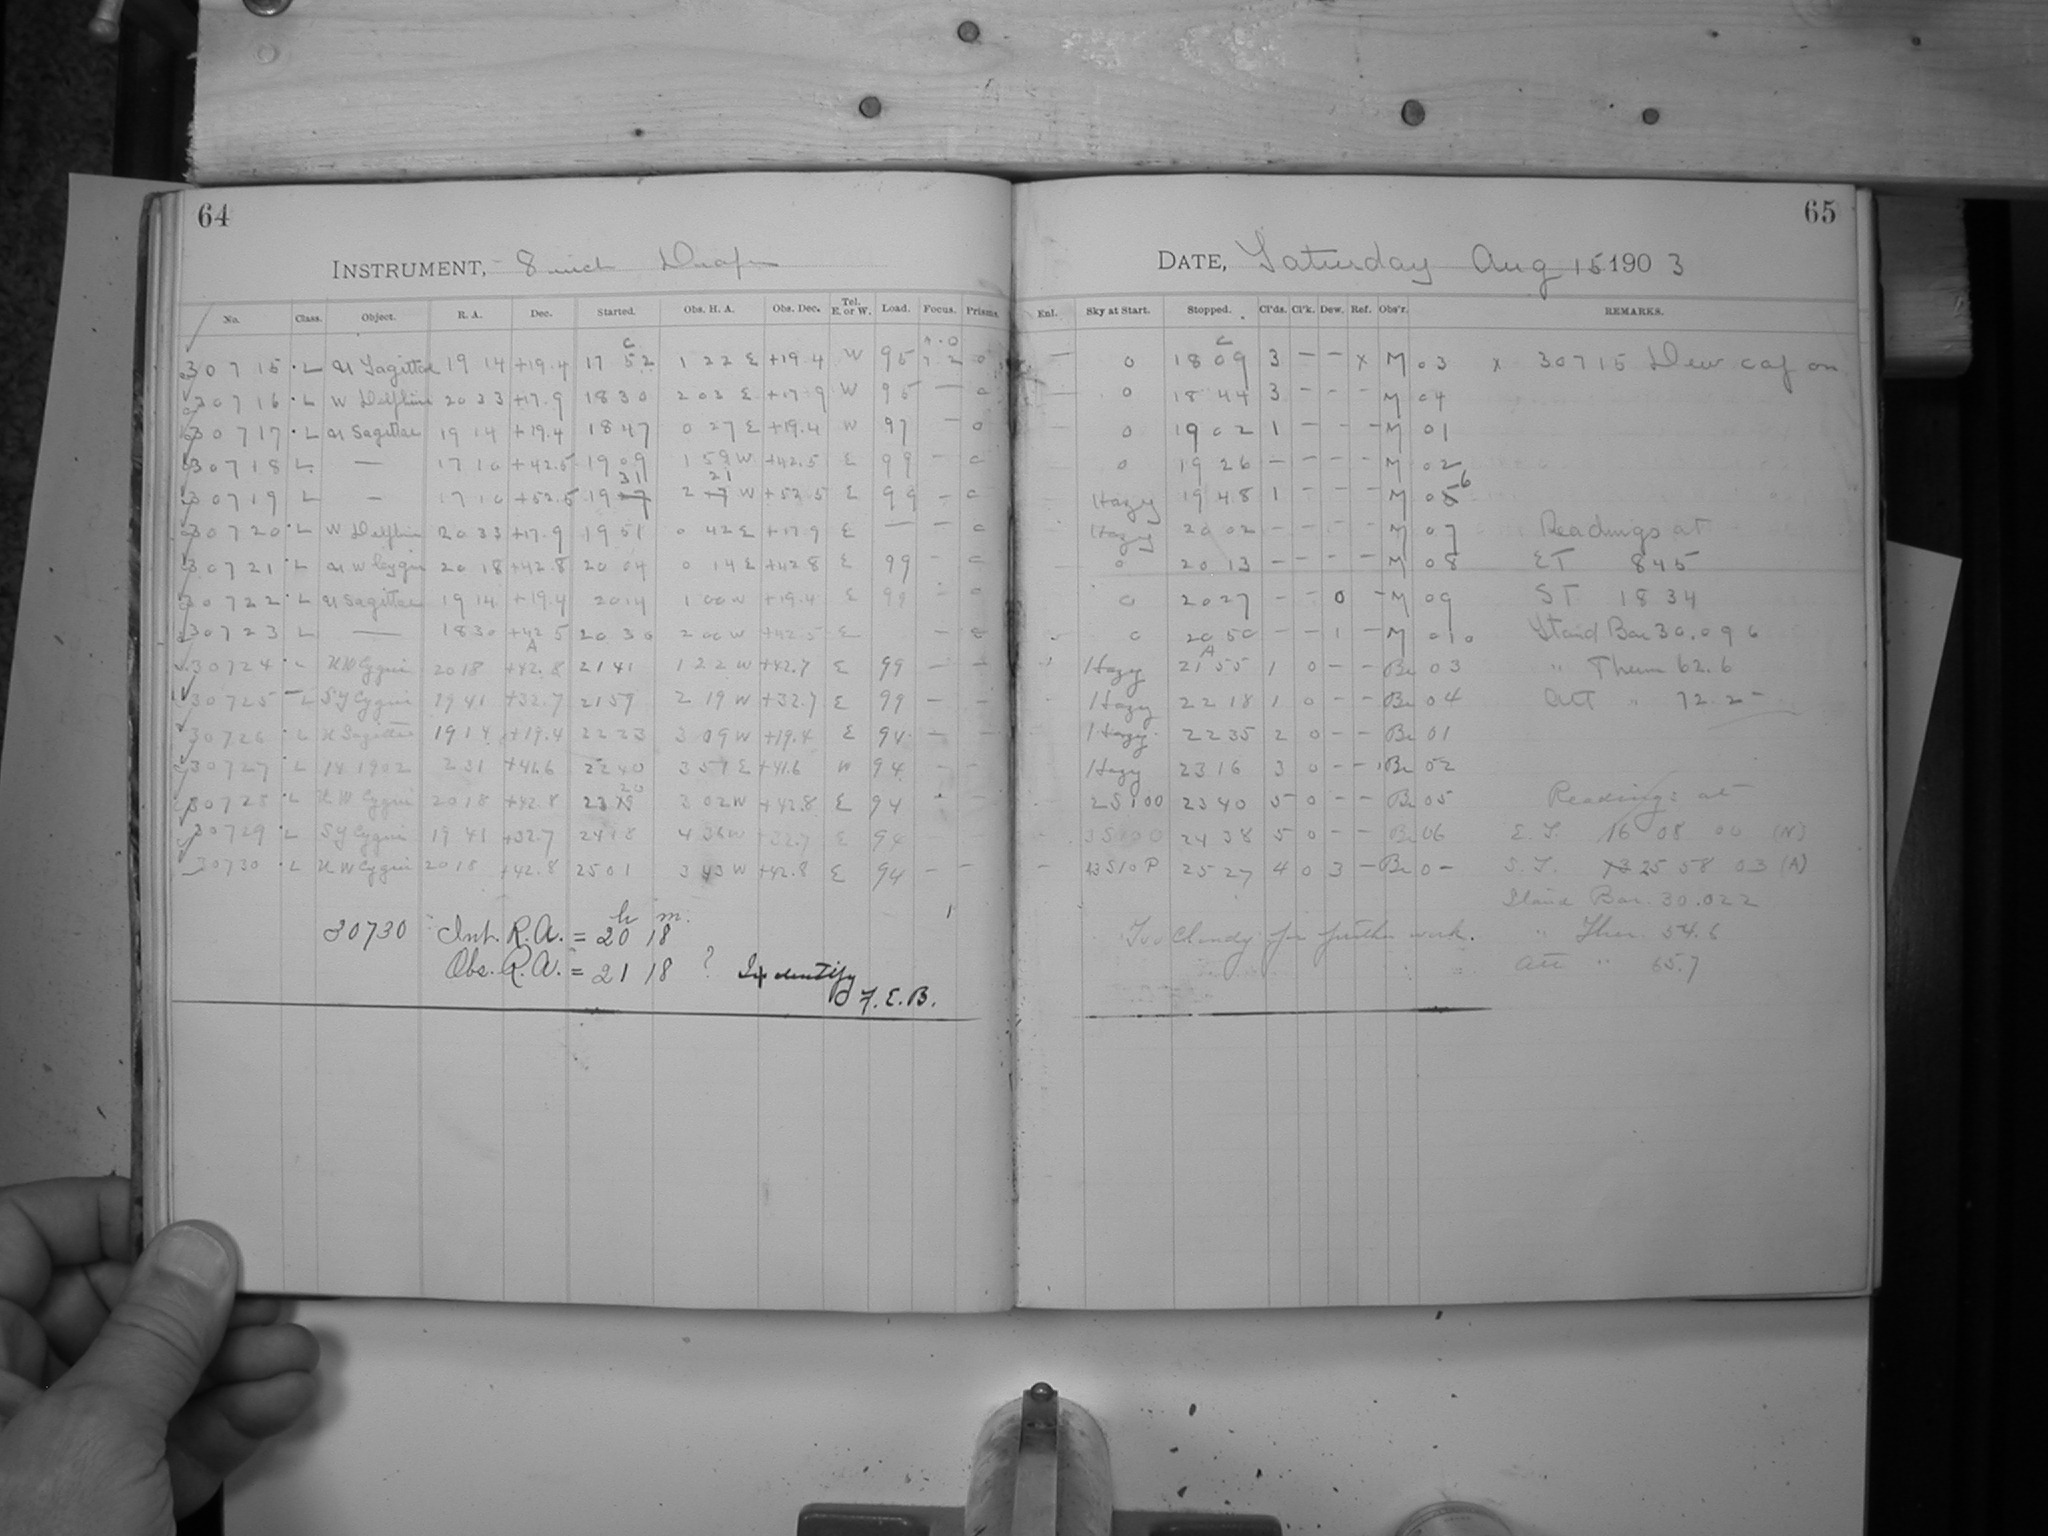 64
INSTRUMENT, 8 inch Draper
No. Class. Object. R. A. Dec. Started. Obs. H. A. Obs. Dec. Tel. E. or W. Load. Focus. Prisms.
30715 L U Sagittae 19 14 +19.4 17 52 1 22 E +19.4 W 95
30716 L W Delphini 20 33 +17.9 18 30 2 03 E +17.9 W 95 —
30717 L U Sagittae 19 14 +19.4 18 47 0 27 E +19.4 W 97 — 0
30718 L — 17 10 +42.5 19 09 1 59 W +42.5 E 99 —
30719 L — 17 10 +52.5 19 31 2 21 W +52.5 E 99 —
30720 L W Delphini 20 33 +17.9 19 51 0 42 E +17.9 E — —
30721 L U W Cygni 20 18 +42.8 20 04 0 14 E +42.8 E 99 —
30722 L U Sagittae 19 14 +19.4 20 14 1 00 W +19.4 E 99
30723 L — 18 30 +42.5 20 30 2 00 W +42.5 E —
30724 L U W Cygni 20 18 +42.8 21 41 1 22 W +42.7 E 99 — —
30725 L SY Cygni 19 41 +32.7 21 59 2 19 W +32.7 E 99 — —
30726 L U Sagittae 19 14 +19.4 22 23 3 09 W +19.4 E 94 — —
30727 L 14 1902 2 31 +41.6 22 40 3 51 E +41.6 W 94 — —
30728 L U W Cygni 20 18 +42.8 23 20 3 02 W +42.8 E 94
30729 L SY Cygni 19 41 +32.7 24 18 4 36 W +32.7 E 94
30730 L U W Cygni 20 18 +42.8 25 01 3 43 W +42.8 E 94 — —
30730 Int. R.A. = 20h 18m.
Obs. R.A. = 21 18 ? Identify
F.E.B.
65
DATE, Saturday Aug 15 1903
Enl. Sky at Start. Stopped. Cl'ds. Cl'k. Dew. Ref. Obs'r. REMARKS.
— 0 18 09 3 — — x M 03 x 30715 Dew cap on
0 18 44 3 — — — M 04
0 19 02 1 — — — M 01
0 19 26 — — — — M 02
Hazy 19 48 1 — — — M 06
Hazy 20 02 — — — — M 07 Readings at
0 20 13 — — — — M 08 ET 8 45
0 20 27 — — 0 — M 09 ST 18 34
0 20 50 — — 1 — M 010 Stand Bar 30.096
Hazy 21 55 1 0 — — Be 03 " Therm 62.6
Hazy 22 18 1 0 — — Be 04 Att " 72.2
Hazy 22 35 2 0 — — Be 01
Hazy 23 16 3 0 — — Be 02
2S100 23 40 5 0 — — Be 05 Readings at
3S100 24 38 5 0 — — Be 06 E.T. 16 08 00 (N)
— 23 10 P 25 27 4 0 3 — Be 0— S.T. 25 58 03 (A)
Stand Bar. 30.022
Too Cloudy for further work. " Ther. 54.6
Att " 65.7